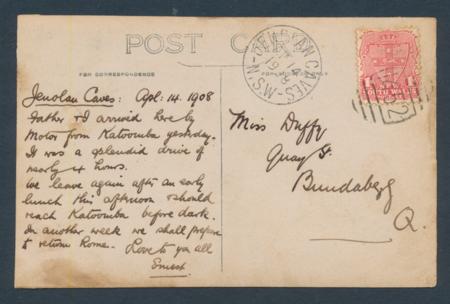 POST CARD
FOR CORRESPONDENCE
Jenolan Caves: Apl: 14. 1908
Father & I arrived here by
Motor from Katoomba yesterday.
It was a splendid drive of
nearly 4 hours.
We leave again after an early
lunch this afternoon & should
reach Katoomba before dark.
In another week we shall prepare
to return Home. Love to you all
Ernest
JENOLAN CAVES N.S.W
NEW
SOUTH WALES
Miss Duffy
Quay St
Bundaberg
Q.